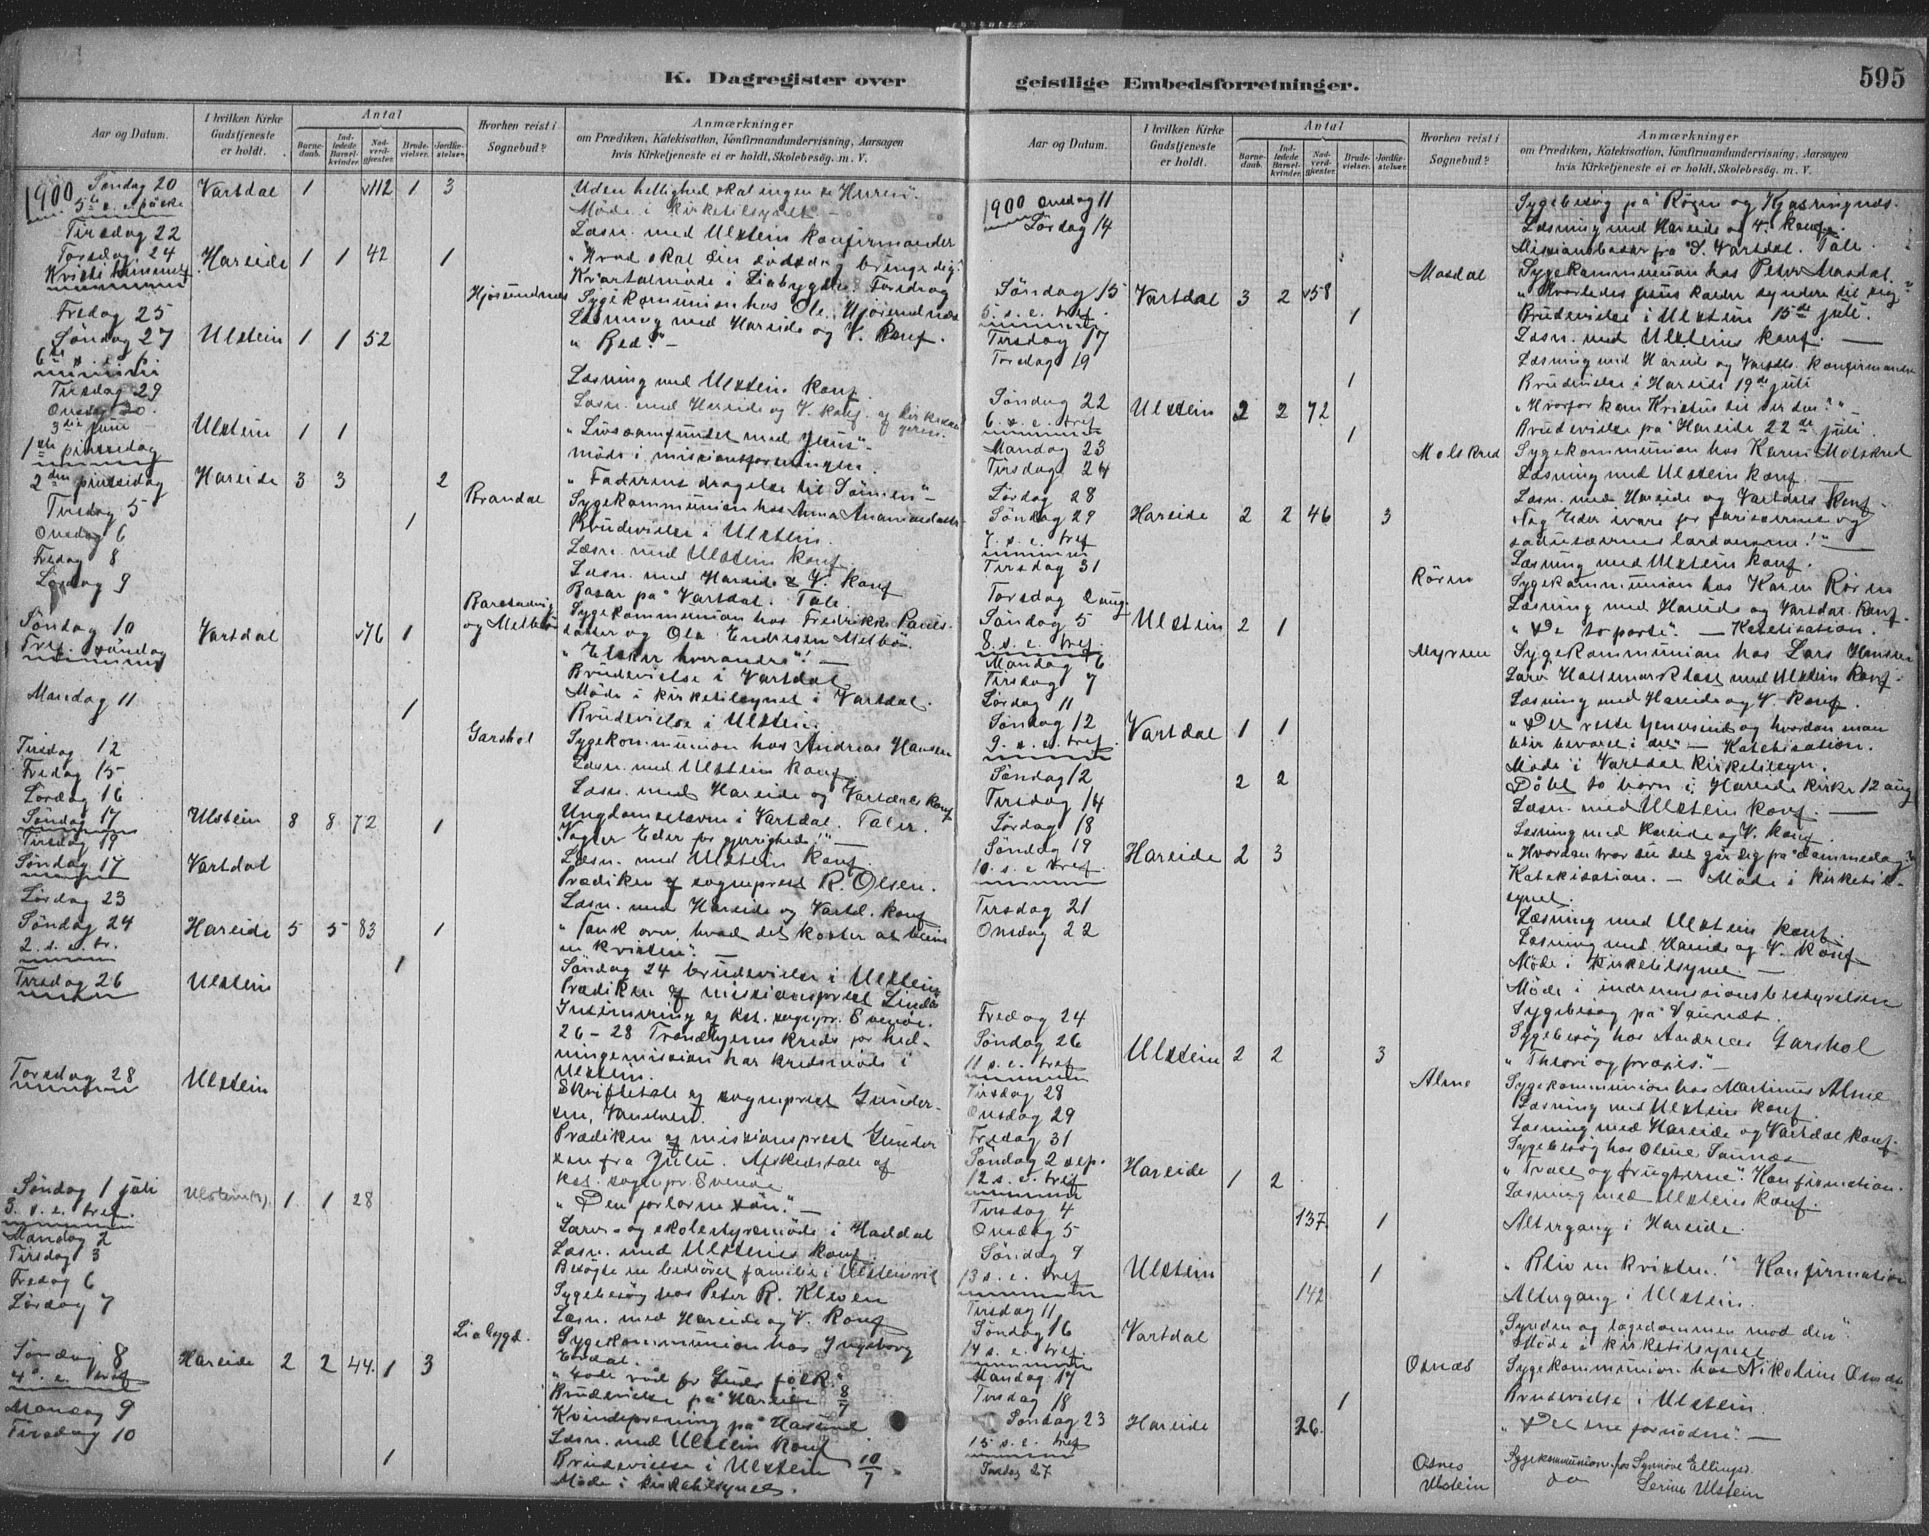 K. Dagregister over
geistlige Embedsforretninger.
595
Aar og Datum.
I hvilken Kirke Gudstjeneste er holdt.
Antal
Barnedaab.
Indledede Barselkvinder.
Nadverdgjester.
Brudevielser.
Jordfæstelser.
Hvorhen reist i Sognebud?
Anmærkninger
om Prædiken, Katekisation, Konfirmandundervisning, Aarsagen
hvis Kirketjeneste ei er holdt, Skolebesøg. m. V.
1900 Søndag 20 Vartdal 1 112 1 3 Uden hellighed skal ingen se Herren.
5te s. e. påske Møde i kirketilsynet –
Tirsdag 22 Læsn. med Ulstein konfirmander
Torsdag 24 Hareide 1 1 42 1 "Hvad skal din
Kristi himmelf. Kvartalmøde i Liabygden. Foredrag
Sygekommunion hos Ole
Fredag 25 Læsning med Hareide og V. konf.
Søndag 27 Ulstein 1 1 52 "Bed." –
6te s. e. p.
Tirsdag 29 Læsning med Ulstein konf.
Onsdag 30. Læsn. med Hareide og V. konf.
3die juni
1ste pinsedag Ulstein 1 1 "Livssamfundet med Jesus" –
møde i missionsforeningen.
2den pinsedag Hareide 3 3 2 "Faderens dragelse til Sønnen" –
Tirsdag 5 Brandal Sygekommunion hos Anna
Onsdag 6 1 Brudevielse i Ulstein.
Fredag 8 Læsn. med Ulstein konf.
Lørdag 9 Læsn. med Hareide & V. konf
Basar på Vartdal. Tale.
Sygekommunion hos Fredrikke Pauls-
datter og Ola Endresen
Søndag 10 Vartdal 76 1 "Elsker hverandre"! –
Tref. søndag Brudevielse i Vartdal
Møde i kirketilsynet i Vartdal.
Mandag 11 1 Brudevielse i Ulstein.
Tirsdag 12 Garshol Sygekommunion hos Andreas Hansen
Fredag 15 Læsn. med Ulstein konf.
Lørdag 16 Læsn. med Hareide og Vartdals konf
Søndag 17 Ulstein 8 8 72 1 Ungdomsstevne i Vartdal. Taler.
Vogter Eder for gjerrighed!" –
Tirsdag 19 Læsn. med Ulstein konf.
Søndag 17 Vartdal Prædiken af sogneprest R. Olsen.
Lørdag 23 Læsn. med Hareide og Vartd. konf
Søndag 24 Hareide 5 5 83 1 "Tænk over, hvad det koster at blive
2. s. e. tr. en kristen." –
1 Søndag 24 brudevielse i Ulstein
Tirsdag 26 Ulstein Prædiken af missionsprest
af kst. sognepr. Svenøe.
26–28 Trondhjems kreds for hed-
ningemission har kredsmøde i
Ulstein.
Torsdag 28 Ulstein Skriftetale af sogneprest Gunder-
sen, Vanelven.
Prædiken af missionsprest Gunder
sen fra Zulu. Afskedstale af
kst. sognepr. Svenøe
Søndag 1 juli 1 1 28 "Den forlorne søn." –
3. s. e. tref.
Mandag 2 og skolestyremøde i Haddal
Tirsdag 3 Læsn. med Ulsteins konf.
Fredag 6 Besøgte en bedrøvet familie i Ulsteinvik
Sygebesøg hos Peter R. Kleven
Lørdag 7 Læsn. med Hareide og V. konf
Liabygd. Sygekommunion hos Ingeborg
Søndag 8 Hareide 2 2 44. 1 3 "Gode råd for Guds folk."
4. s. e. tref Brudevielse på Hareide 8/7
Mandag 9 Kvindeforening på Hasund
Tirsdag 10 Læsn. med Ulstein konf
1 Brudevielse i Ulstein 10/7.
Møde i kirketilsynet.
Aar og Datum.
I hvilken Kirke Gudstjeneste er holdt.
Antal
Barnedaab.
Indledede Barselkvinder.
Nadverdgjester.
Brudevielser.
Jordfæstelser.
Hvorhen reist i Sognebud?
Anmærkninger
om Prædiken, Katekisation, Konfirmandundervisning, Aarsagen
hvis Kirketjeneste ei er holdt, Skolebesøg. m. V.
1900 Onsdag 11 Sygebesøg på Røyen og Kaaringnæs.
Lørdag 14 Læsning med Hareide og V. konf.
Missionsbasar fra S. Vartdal. Tale.
Masdal Sygekommunion hos Peter Masdal.
Søndag 15 Vartdal 3 2 58 "Hvorledes Jesus kalder syndere til sig"
5. s. e. tref. 1 Brudevielse i Ulstein 15de juli.
Tirsdag 17 Læsn. med Ulsteins konf. –
Torsdag 19 Læsning med Hareide og Vartdls. konfirmander
1 Brudevielse i Hareide 19de juli
Søndag 22 Ulstein 2 2 72 "Hvorfor kom Kristus til verden?" –
6. s. e. tref 1 Brudevielse på Hareide 22de juli.
Mandag 23 Molskred Sygekommunion hos Karen Molskred
Tirsdag 24 Læsning med Ulstein konf. –
Lørdag 28 Læsn. med Hareide og Vartdals konf.
Søndag 29 Hareide 2 2 46 3 "Tag Eder ivare for farisæernes og
7. s. e. tref sadusæernes surdeig!" –
Tirsdag 31 Læsning med Ulstein konf.
Rören Sygekommunion hos Karen Rören
Torsdag 2 aug. Læsning med Hareide og Vartdal konf.
Søndag 5 Ulstein 2 1 "De to porte". – Katekisation.
8. s. e. tref
Mandag 6 Myrsen Sygekommunion hos Lars Hansen
Tirsdag 7 med Ulstein konf.
Lørdag 11 Læsning med Hareide og V. konf.
Søndag 12 Vartdal 1 1 "Det rette og hvordan man
9. s. e. tref. blir bevaret i det" – Katekisation.
Møde i Vartdal kirketilsyn.
Søndag 12 2 2 Døbt to børn i Hareide kirke 12 aug
Tirsdag 14 Læsn. med Ulstein konf. –
Lørdag 18 Læsning med Hareide og V. konf
Søndag 19 Hareide 2 3 "Hvordan tror du det går dig på dommedag?"
10. s. e. tref. Katekisation. – Møde i kirketil-
synet.
Tirsdag 21 Læsning med Ulstein konf.
Onsdag 22 Læsning med Hareide og V. konf
Møde i kirketilsynet –
Møde i indremissionsbestyrelsen
Sygebesøg på
Fredag 24 Sygebesøg hos Andreas Garshol
Søndag 26 Ulstein 2 2 3 "Theori og praxis." –
11 s. e. tref
Tirsdag 28 Alme Sygekommunion hos Martinus Alme
Onsdag 29 Læsning med Ulstein konf.
Fredag 31 Læsning med Hareide og Vartdal konf.
Sygebesøg hos Oline
Søndag 2 sep. Hareide 1 2 "Træet og frugterne". Konfirmation.
12. s. e. tref
Tirsdag 4 Læsning med Ulsteins konf.
Onsdag 5 137 1 Altergang i Hareide.
Søndag 9 Ulstein 1 "Bliv en kristen!" Konfirmation
13 s. e. tref
Tirsdag 11 142 Altergang i Ulstein.
Søndag 16 Vartdal "Synden og lægedommen mod den".
14 s. e. tref. Møde i kirketilsynet
Mandag 17 Osnæs Sygekommunion hos Nikoline Osnæs
Tirsdag 18 1 Brudevielse i Ulstein.
Søndag 23 Hareide 26. "Det ene fornødne". –
15 s. e. tref
Torsdag 27 Osnes Sygekommunion hos Synnøve Ellingsd.
Ulstein do Serine Ulstein